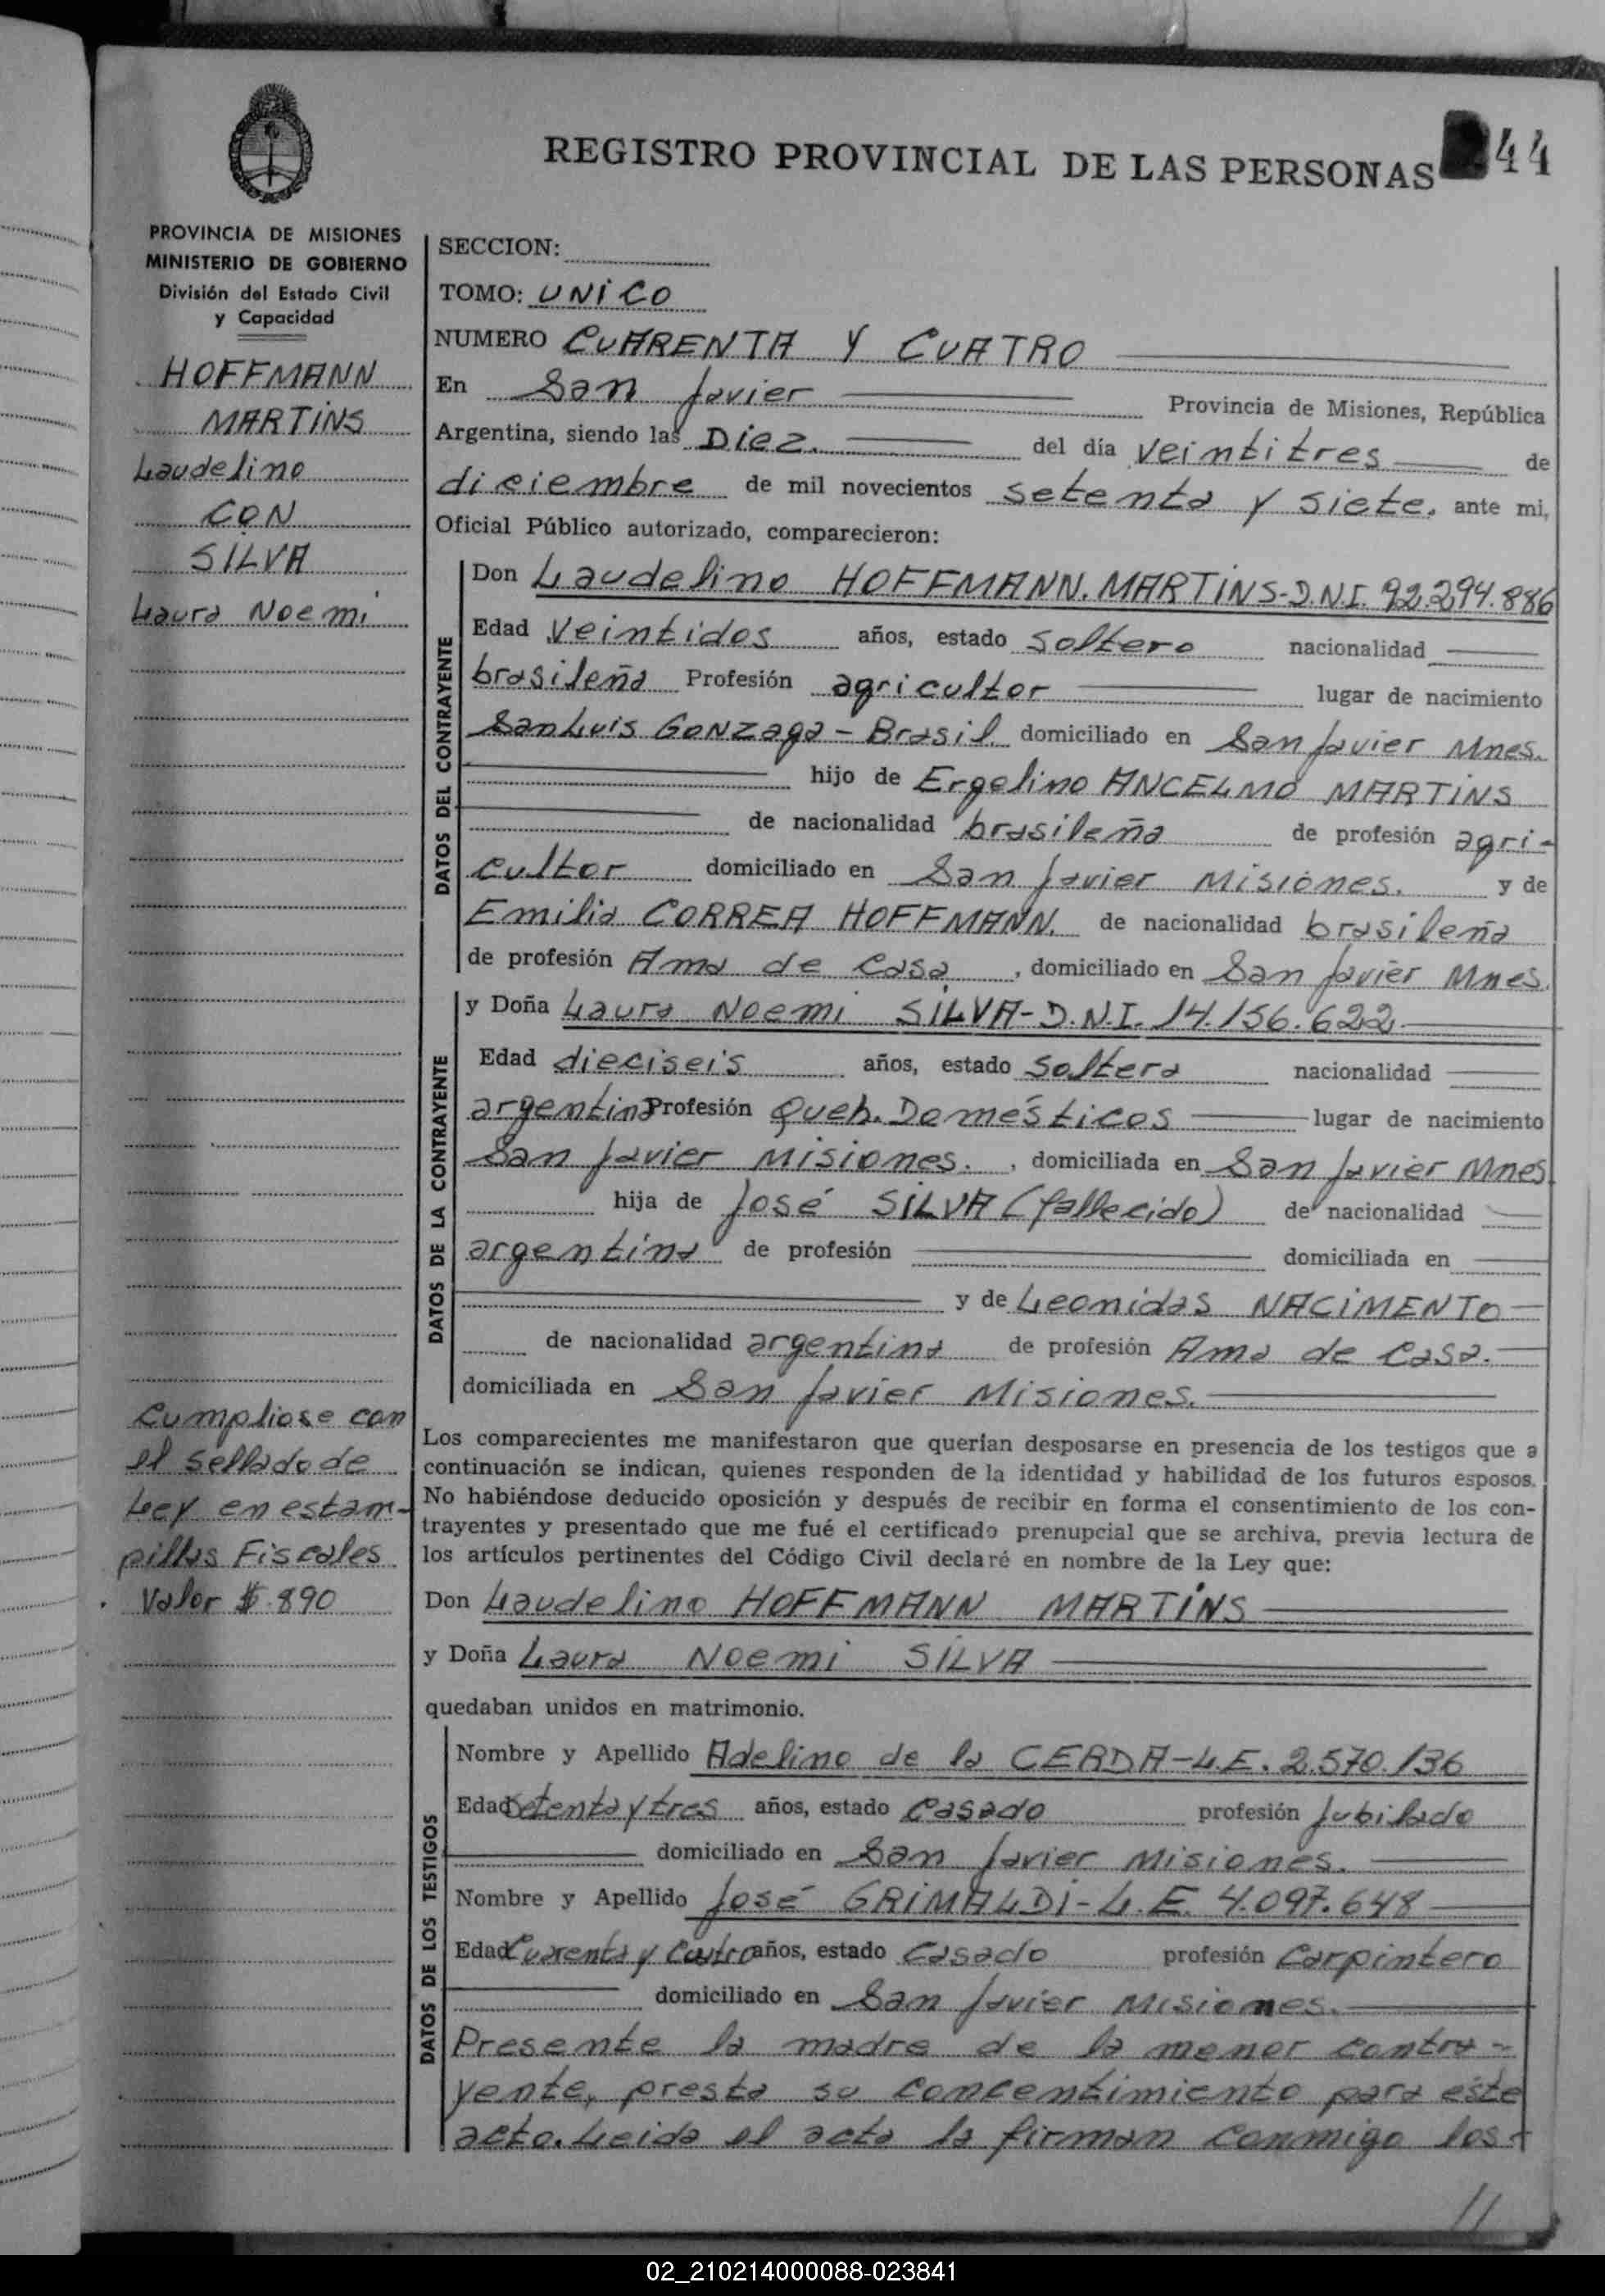 REGISTRO PROVINCIAL DE LAS PERSONAS 44
PROVINCIA DE MISIONES
MINISTERIO DE GOBIERNO
División del Estado Civil
y Capacidad
HOFFMANN
MARTINS
Laudelino
CON
SILVA
Laura Noemi
Cumpliose con
el sellado de
Ley en estam-
pillas Fiscales
Valor $ 890
SECCION:
TOMO: UNICO
NUMERO CUARENTA Y CUATRO
En San Javier Provincia de Misiones, República
Argentina, siendo las Diez. del día veintitres de
diciembre de mil novecientos setenta y siete. ante mi,
Oficial Público autorizado, comparecieron:
DATOS DEL CONTRAYENTE
Don Laudelino HOFFMANN. MARTINS-D.N.I. 92.294.886
Edad Veintidos años, estado soltero nacionalidad
brasileña Profesión agricultor lugar de nacimiento
San Luis GONZaga - Brasil. domiciliado en San Javier Mnes.
hijo de Ergelino ANCELMO MARTINS
de nacionalidad brasileña de profesión agri-
cultor domiciliado en San Javier Misiones. y de
Emilia CORREA HOFFMANN. de nacionalidad brasileña
de profesión Ama de Casa, domiciliado en San Javier Mnes.
DATOS DE LA CONTRAYENTE
y Doña Laura Noemi SILVA-D.N.I. 14.156.622
Edad dieciseis años, estado soltera nacionalidad
argentina Profesión Queh. Domésticos lugar de nacimiento
San Javier Misiones., domiciliada en San Javier Mnes
hija de José SILVA (fallecido) de nacionalidad
argentina de profesión domiciliada en
y de Leonidas NACIMENTO
de nacionalidad argentina de profesión Ama de Casa.
domiciliada en San Javier Misiones.
Los comparecientes me manifestaron que querían desposarse en presencia de los testigos que a
continuación se indican, quienes responden de la identidad y habilidad de los futuros esposos.
No habiéndose deducido oposición y después de recibir en forma el consentimiento de los con-
trayentes y presentado que me fué el certificado prenupcial que se archiva, previa lectura de
los artículos pertinentes del Código Civil declaré en nombre de la Ley que:
Don Laudelino HOFFMANN MARTINS
y Doña Laura Noemi SILVA
quedaban unidos en matrimonio.
DATOS DE LOS TESTIGOS
Nombre y Apellido Adelino de la CERDA-L.E. 2.570.136
Edad Setenta y tres años, estado Casado profesión Jubilado
domiciliado en San Javier Misiones.
Nombre y Apellido José GRIMALDI-L.E. 4.097.648
Edad Cuarenta y Cuatro años, estado Casado profesión Carpintero
domiciliado en San Javier Misiones.
Presente la madre de la menor contra-
yente, presta su concentimiento para este
acto. Leida el acta la firman conmigo los
//
02_210214000088-023841